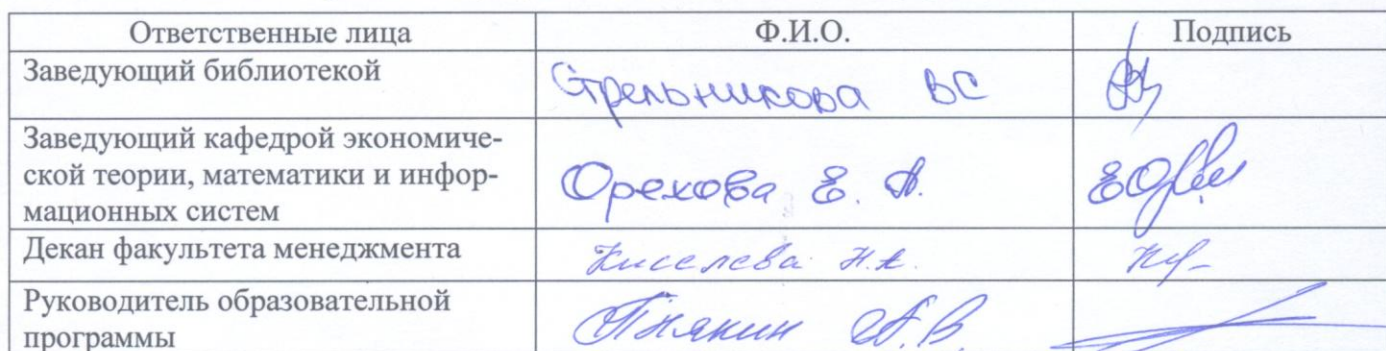 Ответственные лица Ф.И.О. Подпись
Заведующий библиотекой Стрельникова ВС
Заведующий кафедрой экономиче-
ской теории, математики и инфор- Орехова Е. А.
мационных систем
Декан факультета менеджмента Киселева Н.А.
Руководитель образовательной
программы А.В.